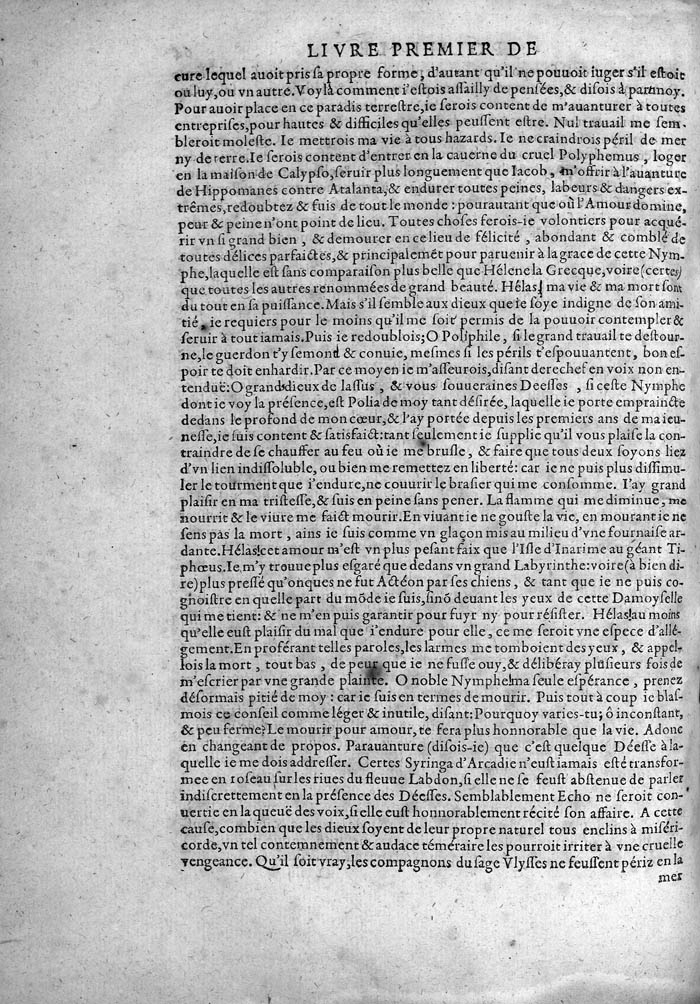 LIVRE PREMIER DE
cure lequel auoit pris sa propre forme; d'autant qu'il ne pouuoit iuger s'il estoit
ou luy, ou vn autre. Voylà comment i'estois assailly de pensées, & disois à parmoy.
Pour auoir place en ce paradis terrestre, ie serois content de m'auanturer à toutes
entreprises, pour hautes & difficiles qu'elles peussent estre. Nul trauail me sem-
bleroit moleste. Ie mettrois ma vie à tous hazards. Ie ne craindrois péril de mer
ny de terre. Ie serois content d'entrer en la cauerne du cruel Polyphemus, loger
en la maison de Calypso, seruir plus longuement que Iacob, m'offrir à l'auanture
de Hippomanes contre Atalanta, & endurer toutes peines, labeurs & dangers ex-
trêmes, redoubtez & fuis de tout le monde: pourautant que où l'Amour domine,
peur & peine n'ont point de lieu. Toutes choses ferois-ie volontiers pour acqué-
rir vn si grand bien, & demourer en ce lieu de félicité, abondant & comblé de
toutes délices parfaictes, & principalemẽt pour paruenir à la grace de cette Nym-
phe, laquelle est sans comparaison plus belle que Hélene la Grecque, voire (certes)
que toutes les autres renommées de grand beauté. Hélas! ma vie & ma mort sont
du tout en sa puissance. Mais s'il semble aux dieux que ie soye indigne de son ami-
tié, ie requiers pour le moins qu'il me soit permis de la pouuoir contempler &
seruir à tout iamais. Puis ie redoublois; O Poliphile, si le grand trauail te destour-
ne, le guerdon t'y semond & conuie, mesmes si les périls t'espouuantent, bon es-
poir te doit enhardir. Par ce moyen ie m'asseurois, disant derechef en voix non en-
tenduë: O grands dieux de lassus, & vous souueraines Deesses, si ceste Nymphe
dont ie voy la présence, est Polia de moy tant désirée, laquelle ie porte emprainte
dedans le profond de mon cœur, & l'ay portée depuis les premiers ans de ma ieu-
nesse, ie suis content & satisfaict: tant seulement ie supplie qu'il vous plaise la con-
traindre de se chauffer au feu où ie me brusle, & faire que tous deux soyons liez
d'vn lien indissoluble, ou bien me remettez en liberté: car ie ne puis plus dissimu-
ler le tourment que i'endure, ne couurir le brasier qui me consomme. I'ay grand
plaisir en ma tristesse, & suis en peine sans pener. La flamme qui me diminue, me
nourrit & le viure me faict mourir. En viuant ie ne gouste la vie, en mourant ie ne
sens pas la mort, ains ie suis comme vn glaçon mis au milieu d'vne fournaise ar-
dante. Hélas! cet amour m'est vn plus pesant faix que l'Isle d'Inarime au géant Ti-
phœus. Ie m'y trouue plus esgaré que dedans vn grand Labyrinthe: voire (à bien di-
re) plus pressé qu'onques ne fut Actéon par ses chiens, & tant que ie ne puis co-
gnoistre en quelle part du mõde ie suis, sinõ deuant les yeux de cette Damoyselle
qui me tient: & ne m'en puis garantir pour fuyr ny pour résister. Hélas! au moins
qu'elle eust plaisir du mal que i'endure pour elle, ce me seroit vne espece d'allé-
gement. En proférant telles paroles, les larmes me tomboient des yeux, & appel-
lois la mort, tout bas, de peur que ie ne fusse ouy, & délibéray plusieurs fois de
m'escrier par vne grande plainte. O noble Nymphe! ma seule espérance, prenez
désormais pitié de moy: car ie suis en termes de mourir. Puis tout à coup ie blas-
mois ce conseil comme léger & inutile, disant: Pourquoy varies-tu; ô inconstant,
& peu ferme? Le mourir pour amour, te fera plus honnorable que la vie. Adonc
en changeant de propos. Parauanture (disois-ie) que c'est quelque Déesse à la-
quelle ie me dois addresser. Certes Syringa d'Arcadie n'eust iamais esté transfor-
mee en roseau sur les riues du fleuue Labdon, si elle ne se feust abstenue de parler
indiscrettement en la présence des Déesses. Semblablement Echo ne seroit con-
uertie en la queuë des voix, si elle eust honnorablement récité son affaire. A cette
cause, combien que les dieux soyent de leur propre naturel tous enclins à miséri-
corde, vn tel contemnement & audace téméraire les pourroit irriter à vne cruelle
vengeance. Qu'il soit vray, les compagnons du sage Vlysses ne feussent périz en la
mer